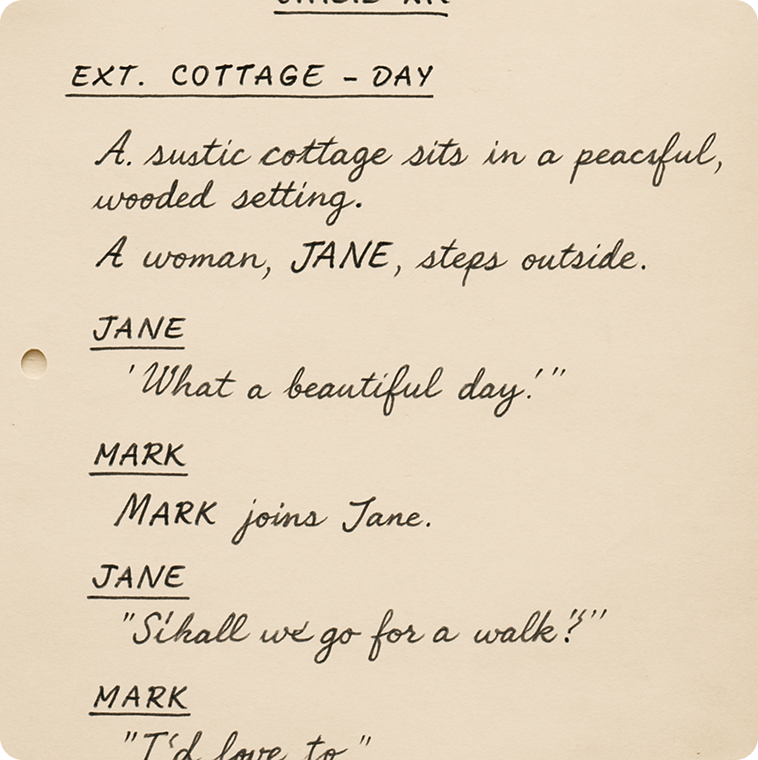 EXT. COTTAGE – DAY
A. sustic cottage sits in a peacsful,
wooded setting.
A woman, JANE, steps outside.
JANE
'What a beautiful day!'"
MARK
MARK joins Jane.
JANE
"S'hall we go for a walk?"
MARK
"I'd love to"